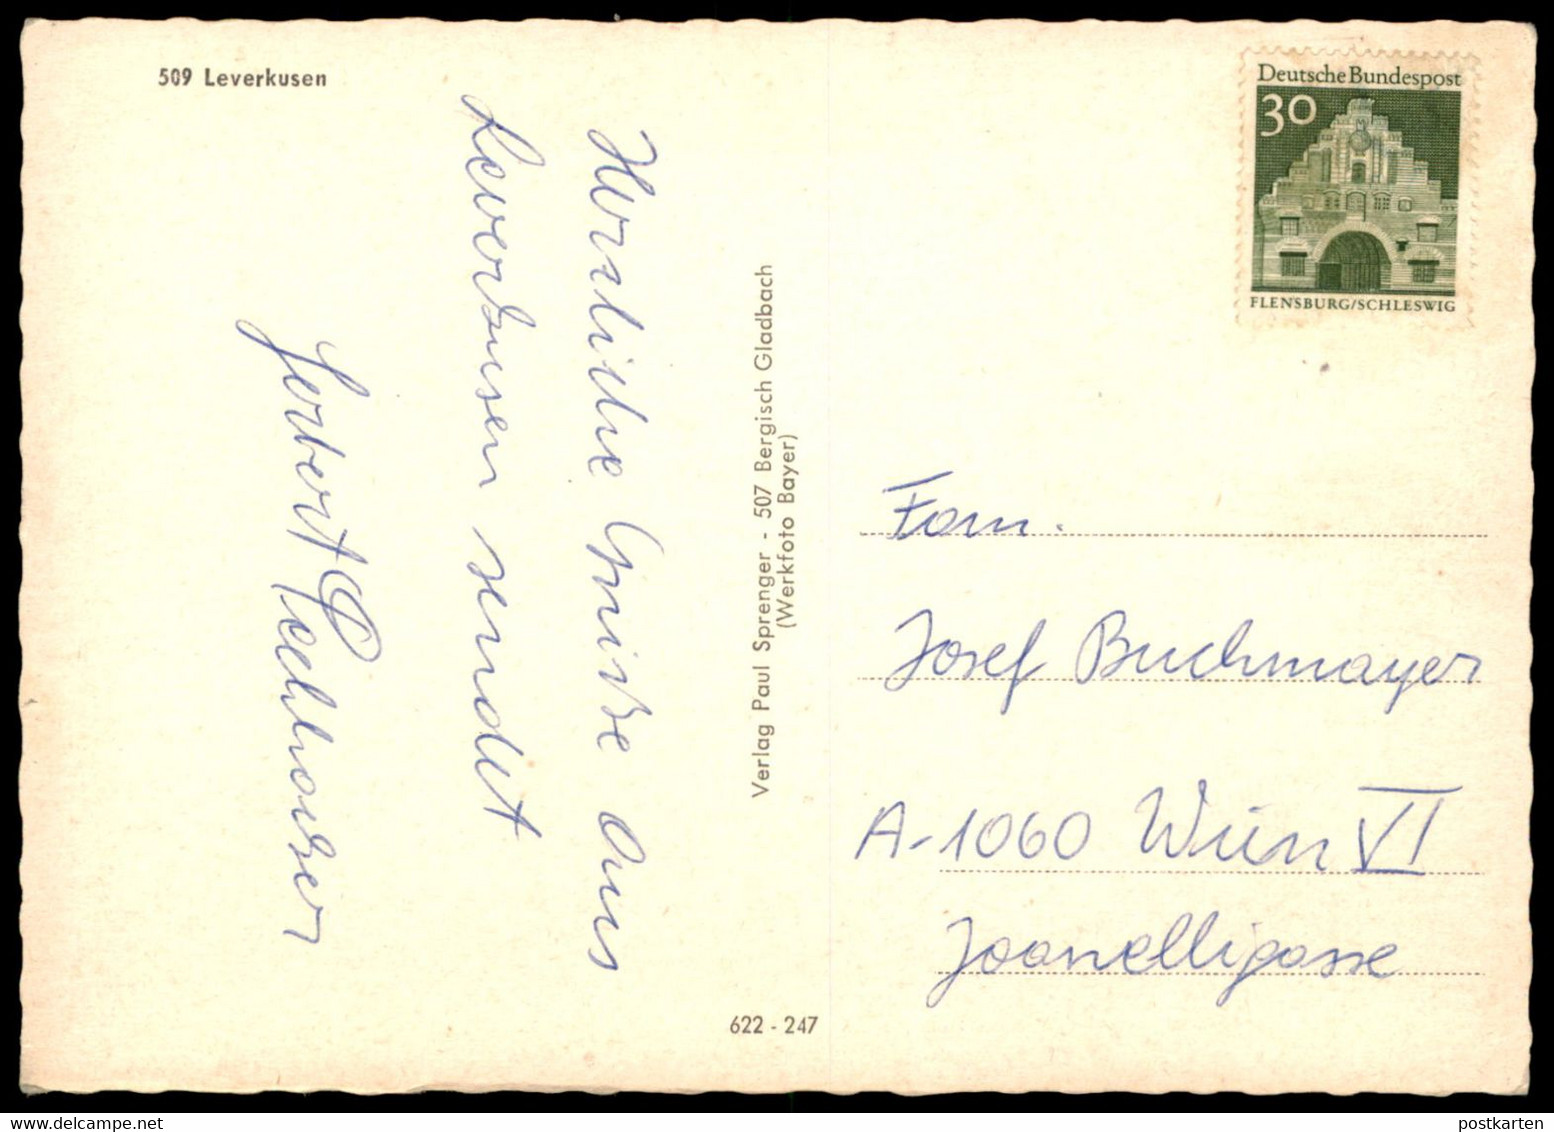 509 Leverkusen
Herzliche Grüße aus
Leverkusen sendet
Herbert
Verlag Paul Sprenger - 507 Bergisch Gladbach
(Werkfoto Bayer)
622 - 247
Deutsche Bundespost
30
FLENSBURG/SCHLESWIG
Fam.
Josef Buchmayer
A-1060 Wien VI
Joanelligasse
postkarten